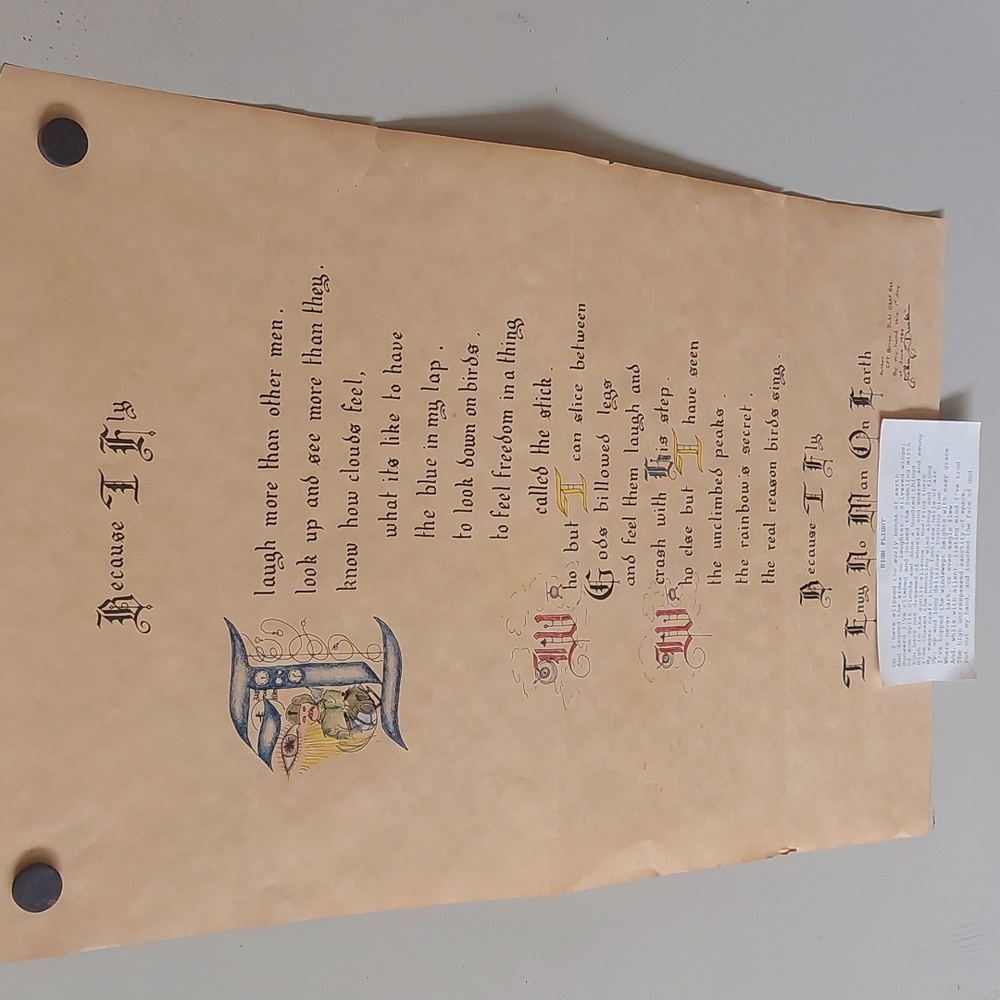 Because I Fly
I laugh more than other men,
look up and see more than they.
know how clouds feel,
what its like to have
the blue in my lap,
to look down on birds,
to feel freedom in a thing
called the stick.
Who but I can slice between
Gods billowed legs
and feel them laugh and
crash with His step.
Who else but I have seen
the unclimbed peaks,
the rainbow's secret,
the real reason birds sing.
Because I Fly
I Envy No Man On Earth
By my hand this 1st day
HIGH FLIGHT
Oh, I have slipped the surly bonds of earth
And danced the skies on laughter-silvered wings
Sunward I've climbed and joined the tumbling mirth
Of sun-split clouds and done a hundred things
You have not dreamed of wheeled and soared and swung
High in the sunlit silence. Hov'ring there
I've chased the shouting wind along and flung
My eager craft through footless halls of air
Up, up the long delirious burning blue
I've topped the windswept heights with easy grace
Where never lark, or even eagle flew
And, while with silent lifting mind I've trod
The high untrespassed sanctity of space,
Put out my hand, and touched the face of God.